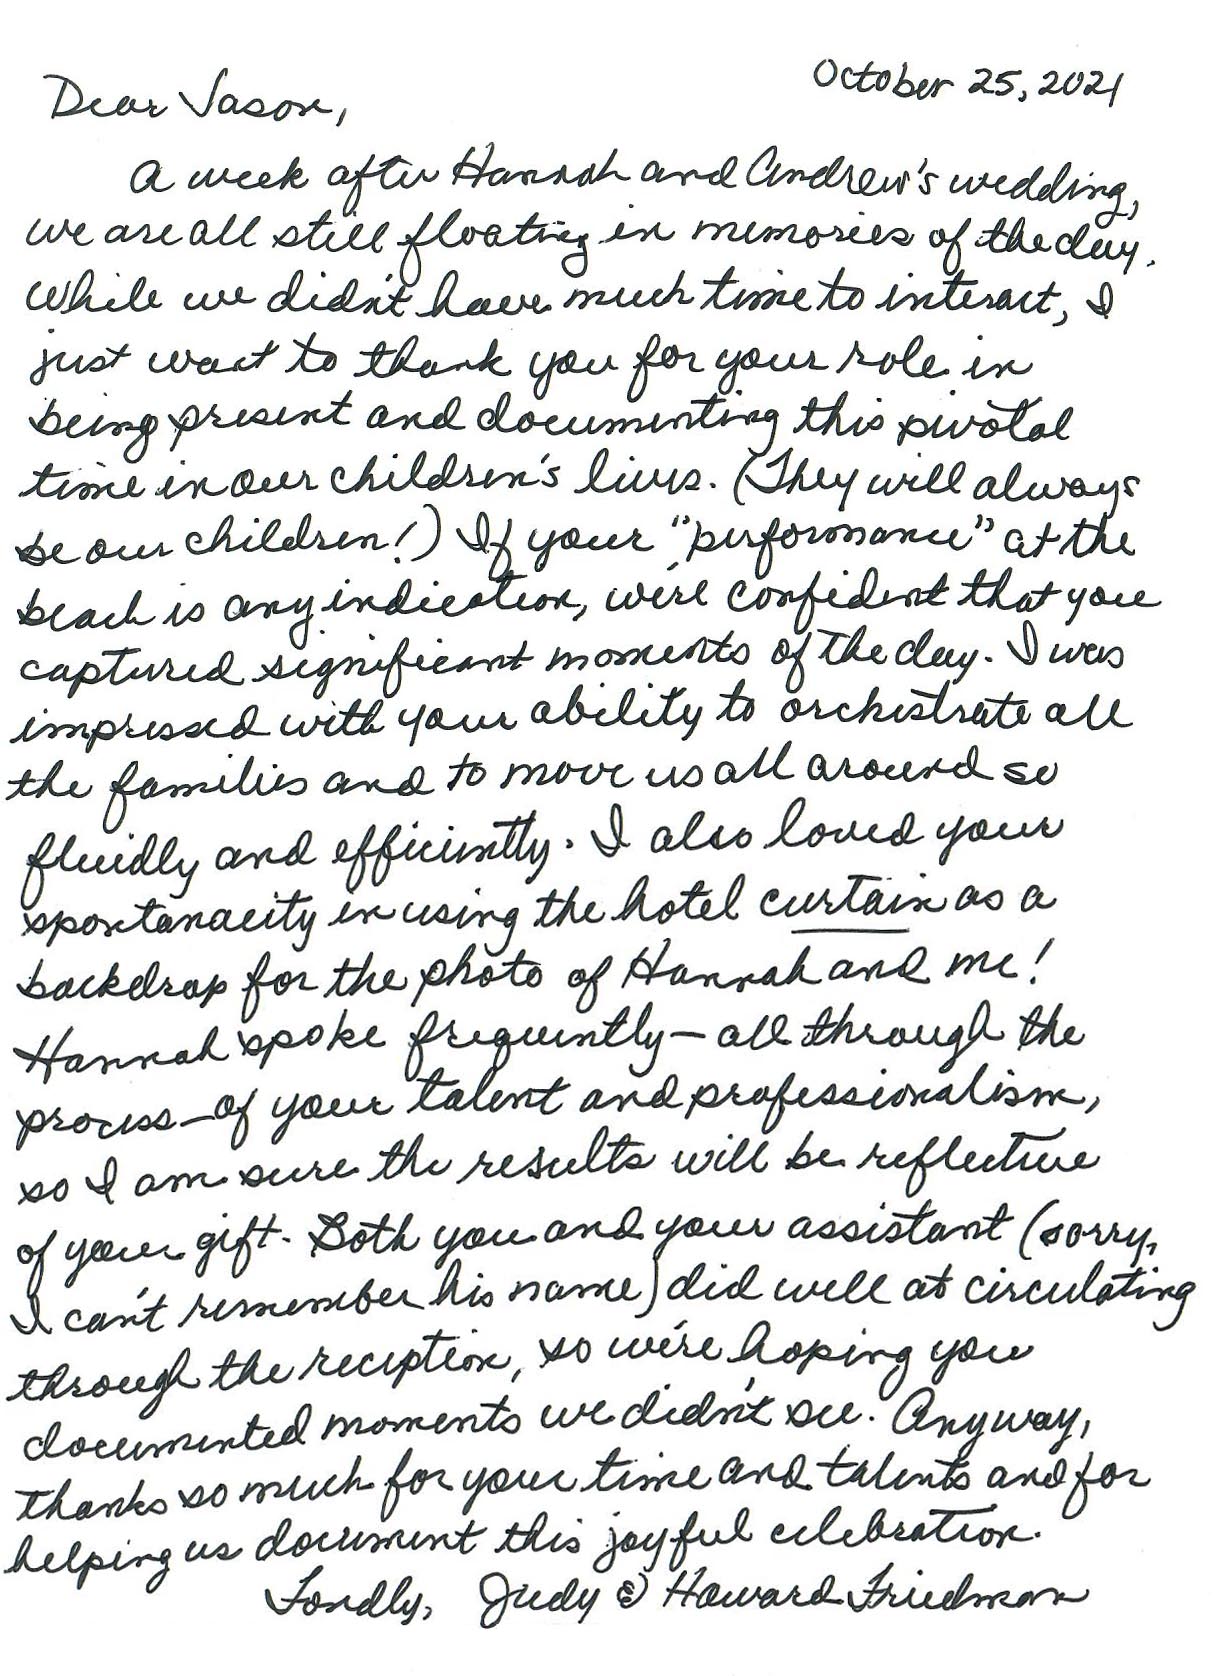 October 25, 2021
Dear Jason,
A week after Hannah and Andrew's wedding,
we are all still floating in memories of the day.
While we didn't have much time to interact, I
just want to thank you for your role in
being present and documenting this pivotal
time in our children's lives. (They will always
be our children!) If your "performance" at the
beach is any indication, we're confident that you
captured significant moments of the day. I was
impressed with your ability to orchestrate all
the families and to move us all around so
fluidly and efficiently. I also loved your
spontanaeity in using the hotel curtain as a
backdrop for the photo of Hannah and me!
Hannah spoke frequently—all through the
process—of your talent and professionalism,
so I am sure the results will be reflective
of your gift. Both you and your assistant (sorry,
I can't remember his name) did well at circulating
through the reception, so we're hoping you
documented moments we didn't see. Anyway,
thanks so much for your time and talents and for
helping us document this joyful celebration.
Fondly, Judy & Howard Friedman